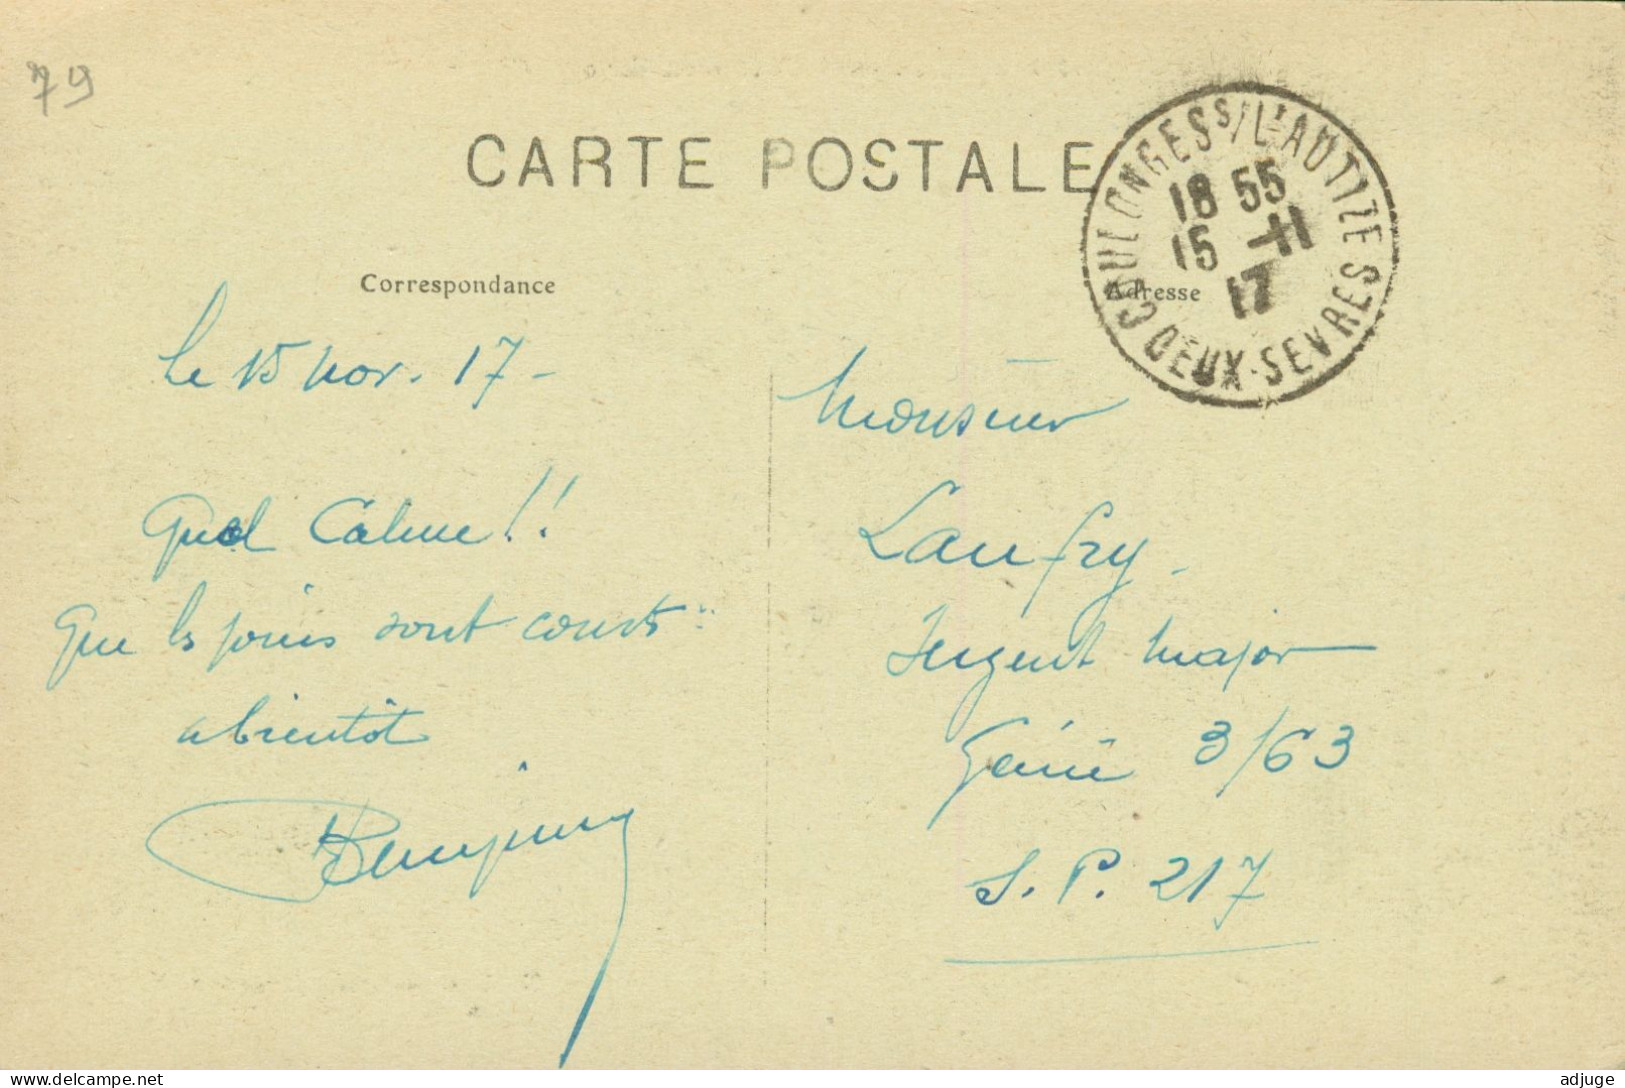 79
CARTE POSTALE
COULONGES S/L'AUTIZE
18 55
15 -11
17
DEUX-SEVRES
Correspondance
Adresse
Le 15 nov. 17 -
Quel Calme!!
Que les jours sont courts
a bientôt
Monsieur
Laufry -
Sergent major
Génie 3/63
S. P. 217
www.delcampe.net
adjuge